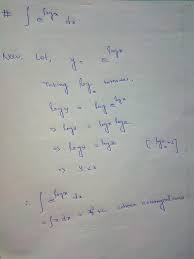 # ∫ e^{log x} dx
Now, Let, y = e^{log x}
Taking log_e
log y = log e^{log x}
⇒ log y = log x log e
⇒ log y = log x
⇒ y = x
∴ ∫ e^{log x} dx
= ∫ x dx = +c where